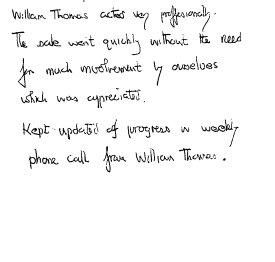 William Thomas acted very professionally.
The sale went quickly without the need
for much involvement by ourselves
which was appreciated.
Kept updated of progress in weekly
phone call from William Thomas.